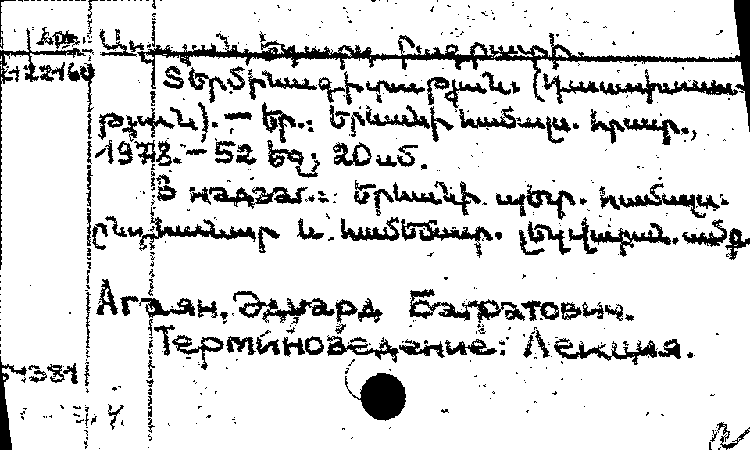 Арм.
Աղայան, Էդուարդ Բագրատի.
2122160
Տերմինագիտություն: (Դասախոսու-
թյուն). — Եր.: Երևանի համալս. հրատ.,
1978. — 52 եջ; 20 սմ.
В надзаг.: Երևանի պետ. համալս.
ընդհանուր և համեմատ. լեզվաբան. ամբ.
Агаян, Эдуард Багратович.
Терминоведение: Лекция.
54381